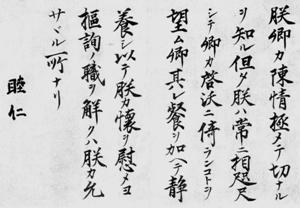 朕卿カ陳情極メテ切ナル
ヲ知ル但タ朕ハ常ニ相咫尺
シテ卿カ啓沃ニ倚ランコトヲ
望ム卿其レ餐ヲ加ヘテ静
養シ以テ朕カ懐ヲ慰メヨ
樞詢ノ職ヲ解クハ朕カ允
サヾル所ナリ
睦仁